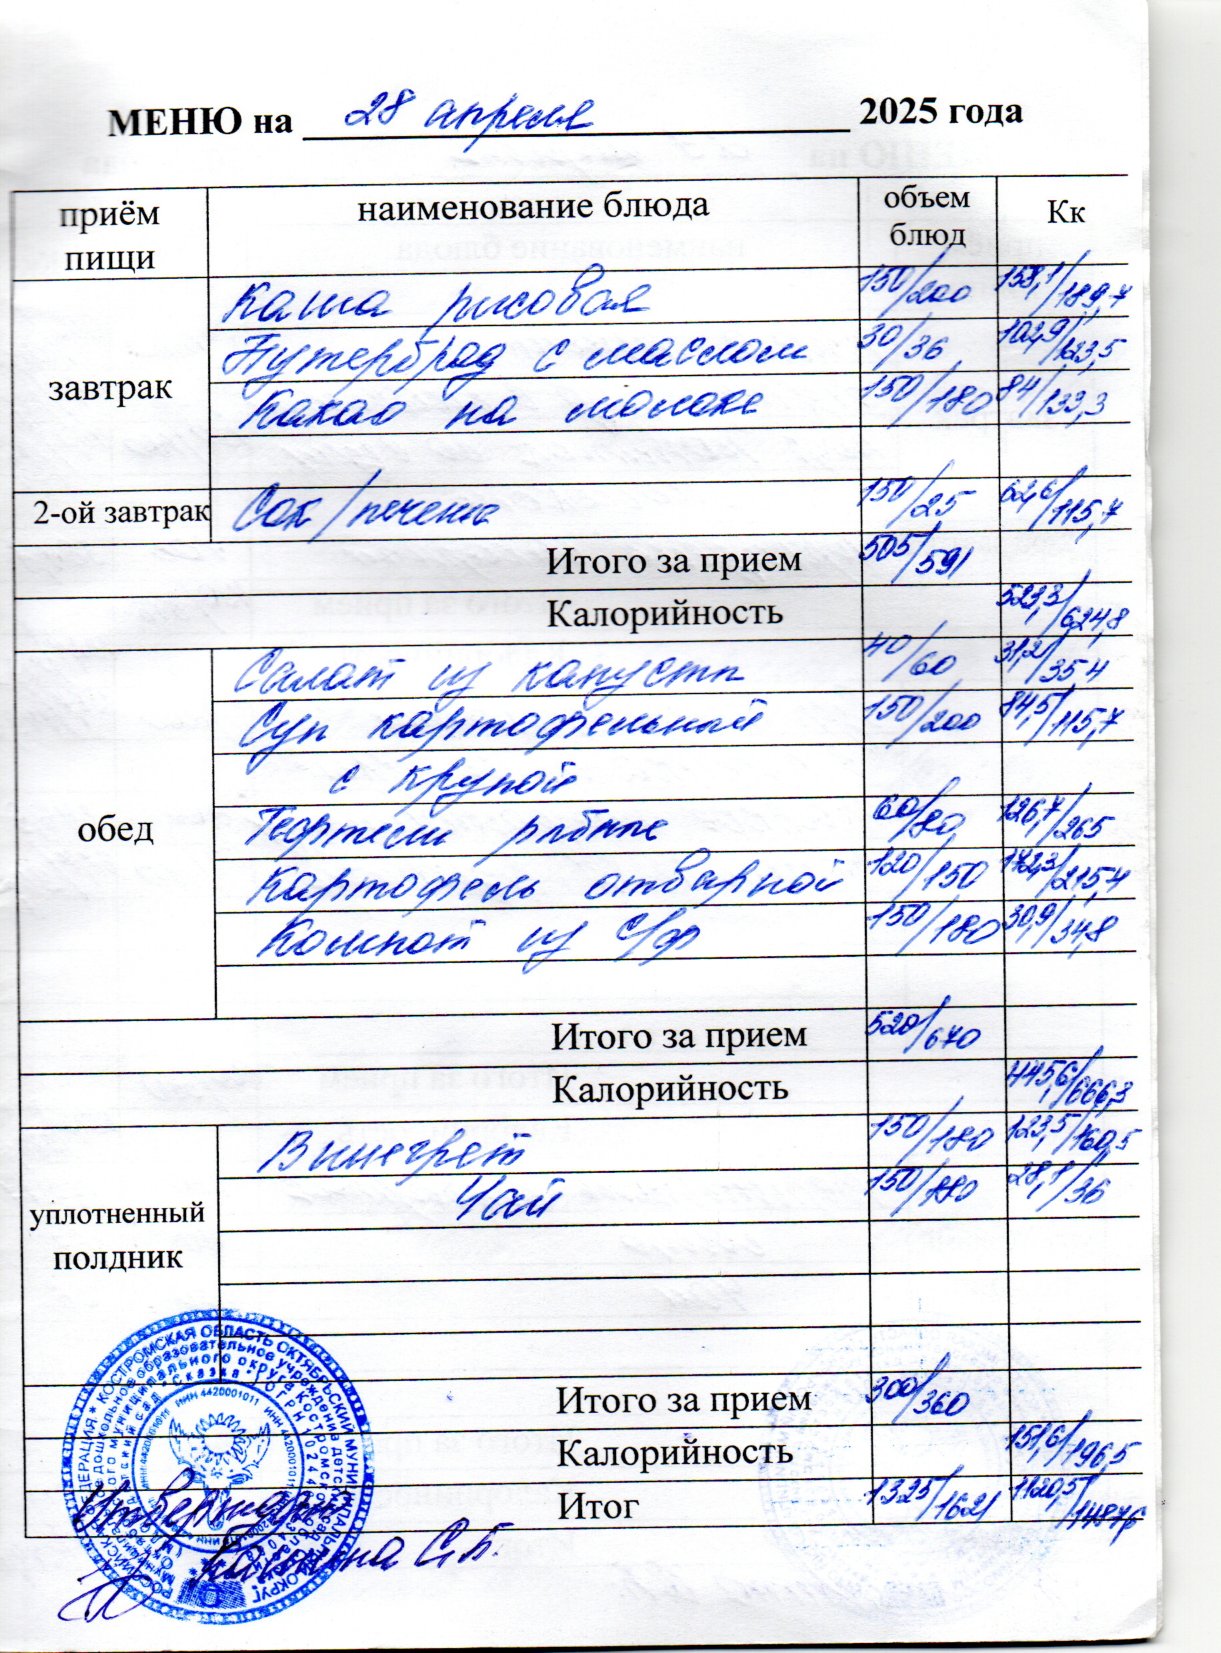 МЕНЮ на 28 апреля 2025 года
приём пищи наименование блюда объем блюд Кк
завтрак
Каша рисовая 150/200 158,1/189,7
Бутерброд с маслом 30/36 102,9/123,5
Какао на молоке 150/180 84/133,3
2-ой завтрак Сок/печенье 150/25 62,6/115,7
Итого за прием 505/591
Калорийность 523,3/624,8
обед
Салат из капусты 40/60 31,2/35 4
Суп картофельный 150/200 84,5/115,7
с крупой
Тефтели рыбные 60/80 126,7/265
Картофель отварной 120/150 172,3/215,4
Компот из с/ф 150/180 30,9/34,8
Итого за прием 520/670
Калорийность 445,6/666,3
уплотненный полдник
Винегрет 150/180 123,5/160,5
Чай 150/180 28,1/36
Итого за прием 300/360
Калорийность 151,6/196,5
Итог 1325/1621 1120,5/1487,6